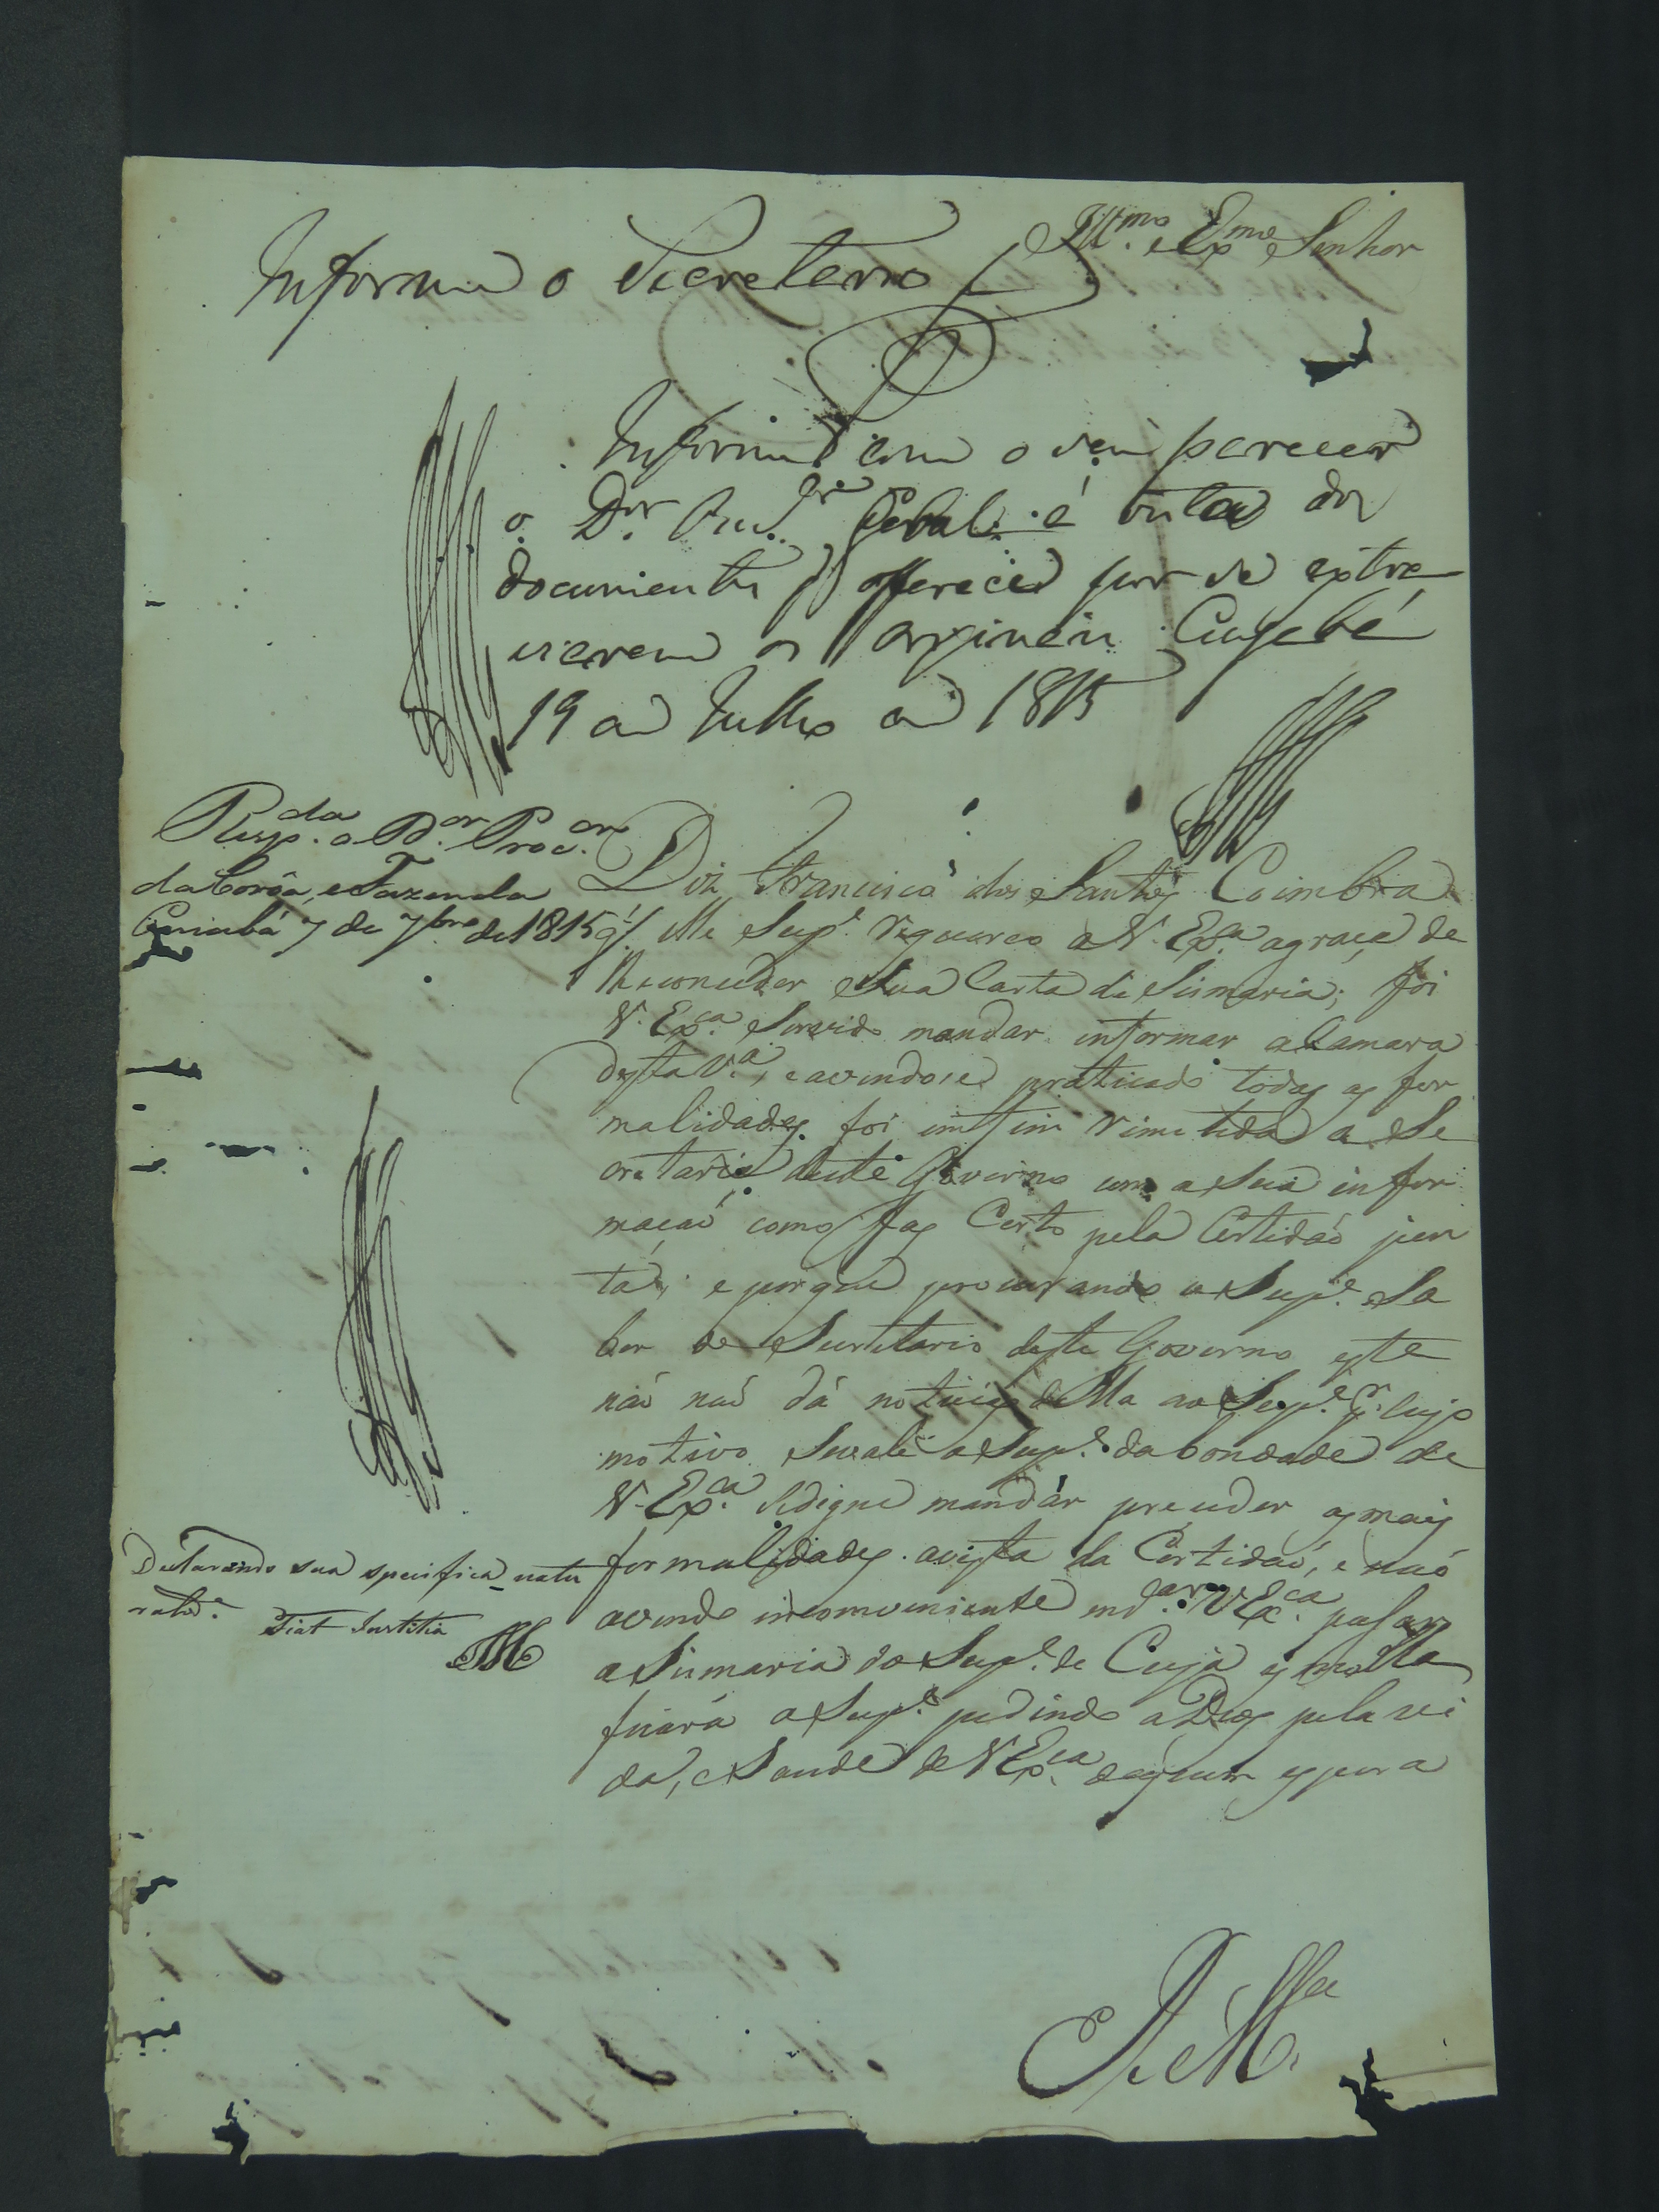 Ill.mo e Ex.mo Senhor
Informe o Secretario
Informe com o seu parecer
o D.or Ouv.or Geral é vista dos
documentos q offerece por se extra
viarem os proprios Cuyabá
19 de Julho de 1815
Resp.da o D.or Proc.or
da Corôa, e Fazenda
Cuiabá 7 de 7bro de 1815
Diz Francisco dos Santos Coimbra
q' elle Sup.e requereo a V. Ex.ca agraça de
lhe conceder Sua Carta de Sismaria; foi
V. Ex.ca Servido mandar informar a Camara
desta V.a, e avendose praticado todas as for
malidades foi emfim rimitida a Se
cretaria deste Governo com a sua infor
maçaõ como fas Certo pela Certidaõ jun
ta; e porque procurando o Sup.e Sa
ber do Secretario deste Governo este
naõ naõ dá noticia della ao Sup.e p.r cujo
motivo Sevale o Sup.e da bondade de
V. Ex.ca Sedigne mandar preceder as mais
formalidades avista da Certidaõ, e naõ
avendo incomveniente md.ar V Ex.ca pasar
a Sismaria do Sup.e de Cuja esmolla
ficará o Sup.e pedindo a Deos pela vi
da, e Saude de V Ex.ca dequem espera
Declarando sua specifica natu
ralid.e Fiat Justitia
E R M.ce